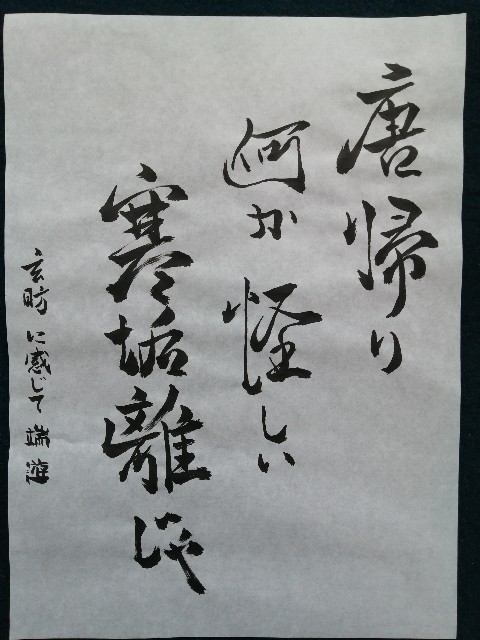 唐帰り
何か怪しい
寒垢離じゃ
玄昉に感じて 端遊